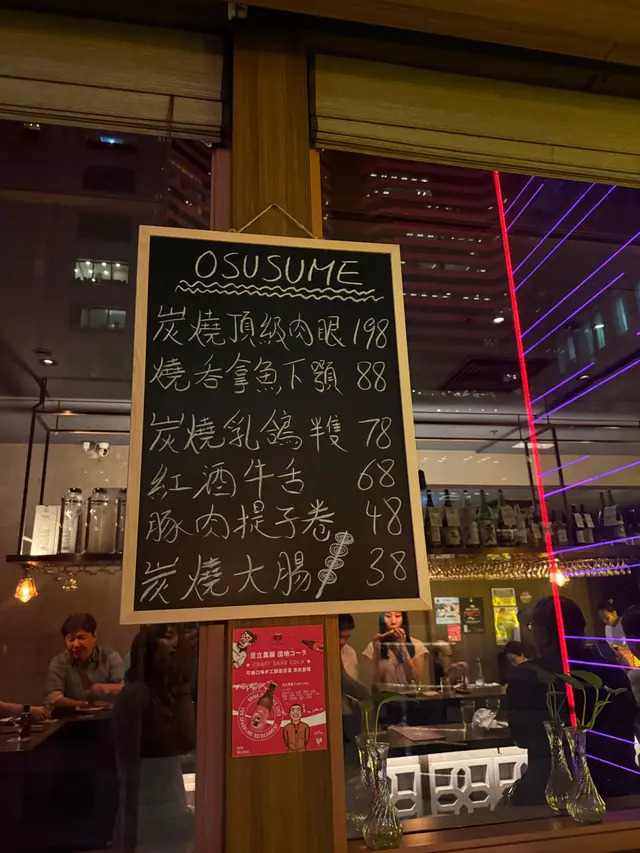 OSUSUME
炭燒頂級肉眼 198
燒吞拿魚下顎 88
炭燒乳鴿半隻 78
紅酒牛舌 68
豚肉提子卷 48
炭燒大腸 38
足立農醸 団地コーラ
CRAFT SAKE COLA